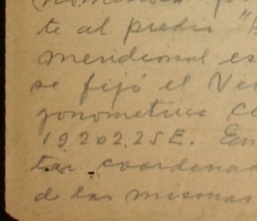 te al predio "
meridional es
se fijó el Ver
gonometrica
19202.25 E. En
tar coordenad
de las mismas